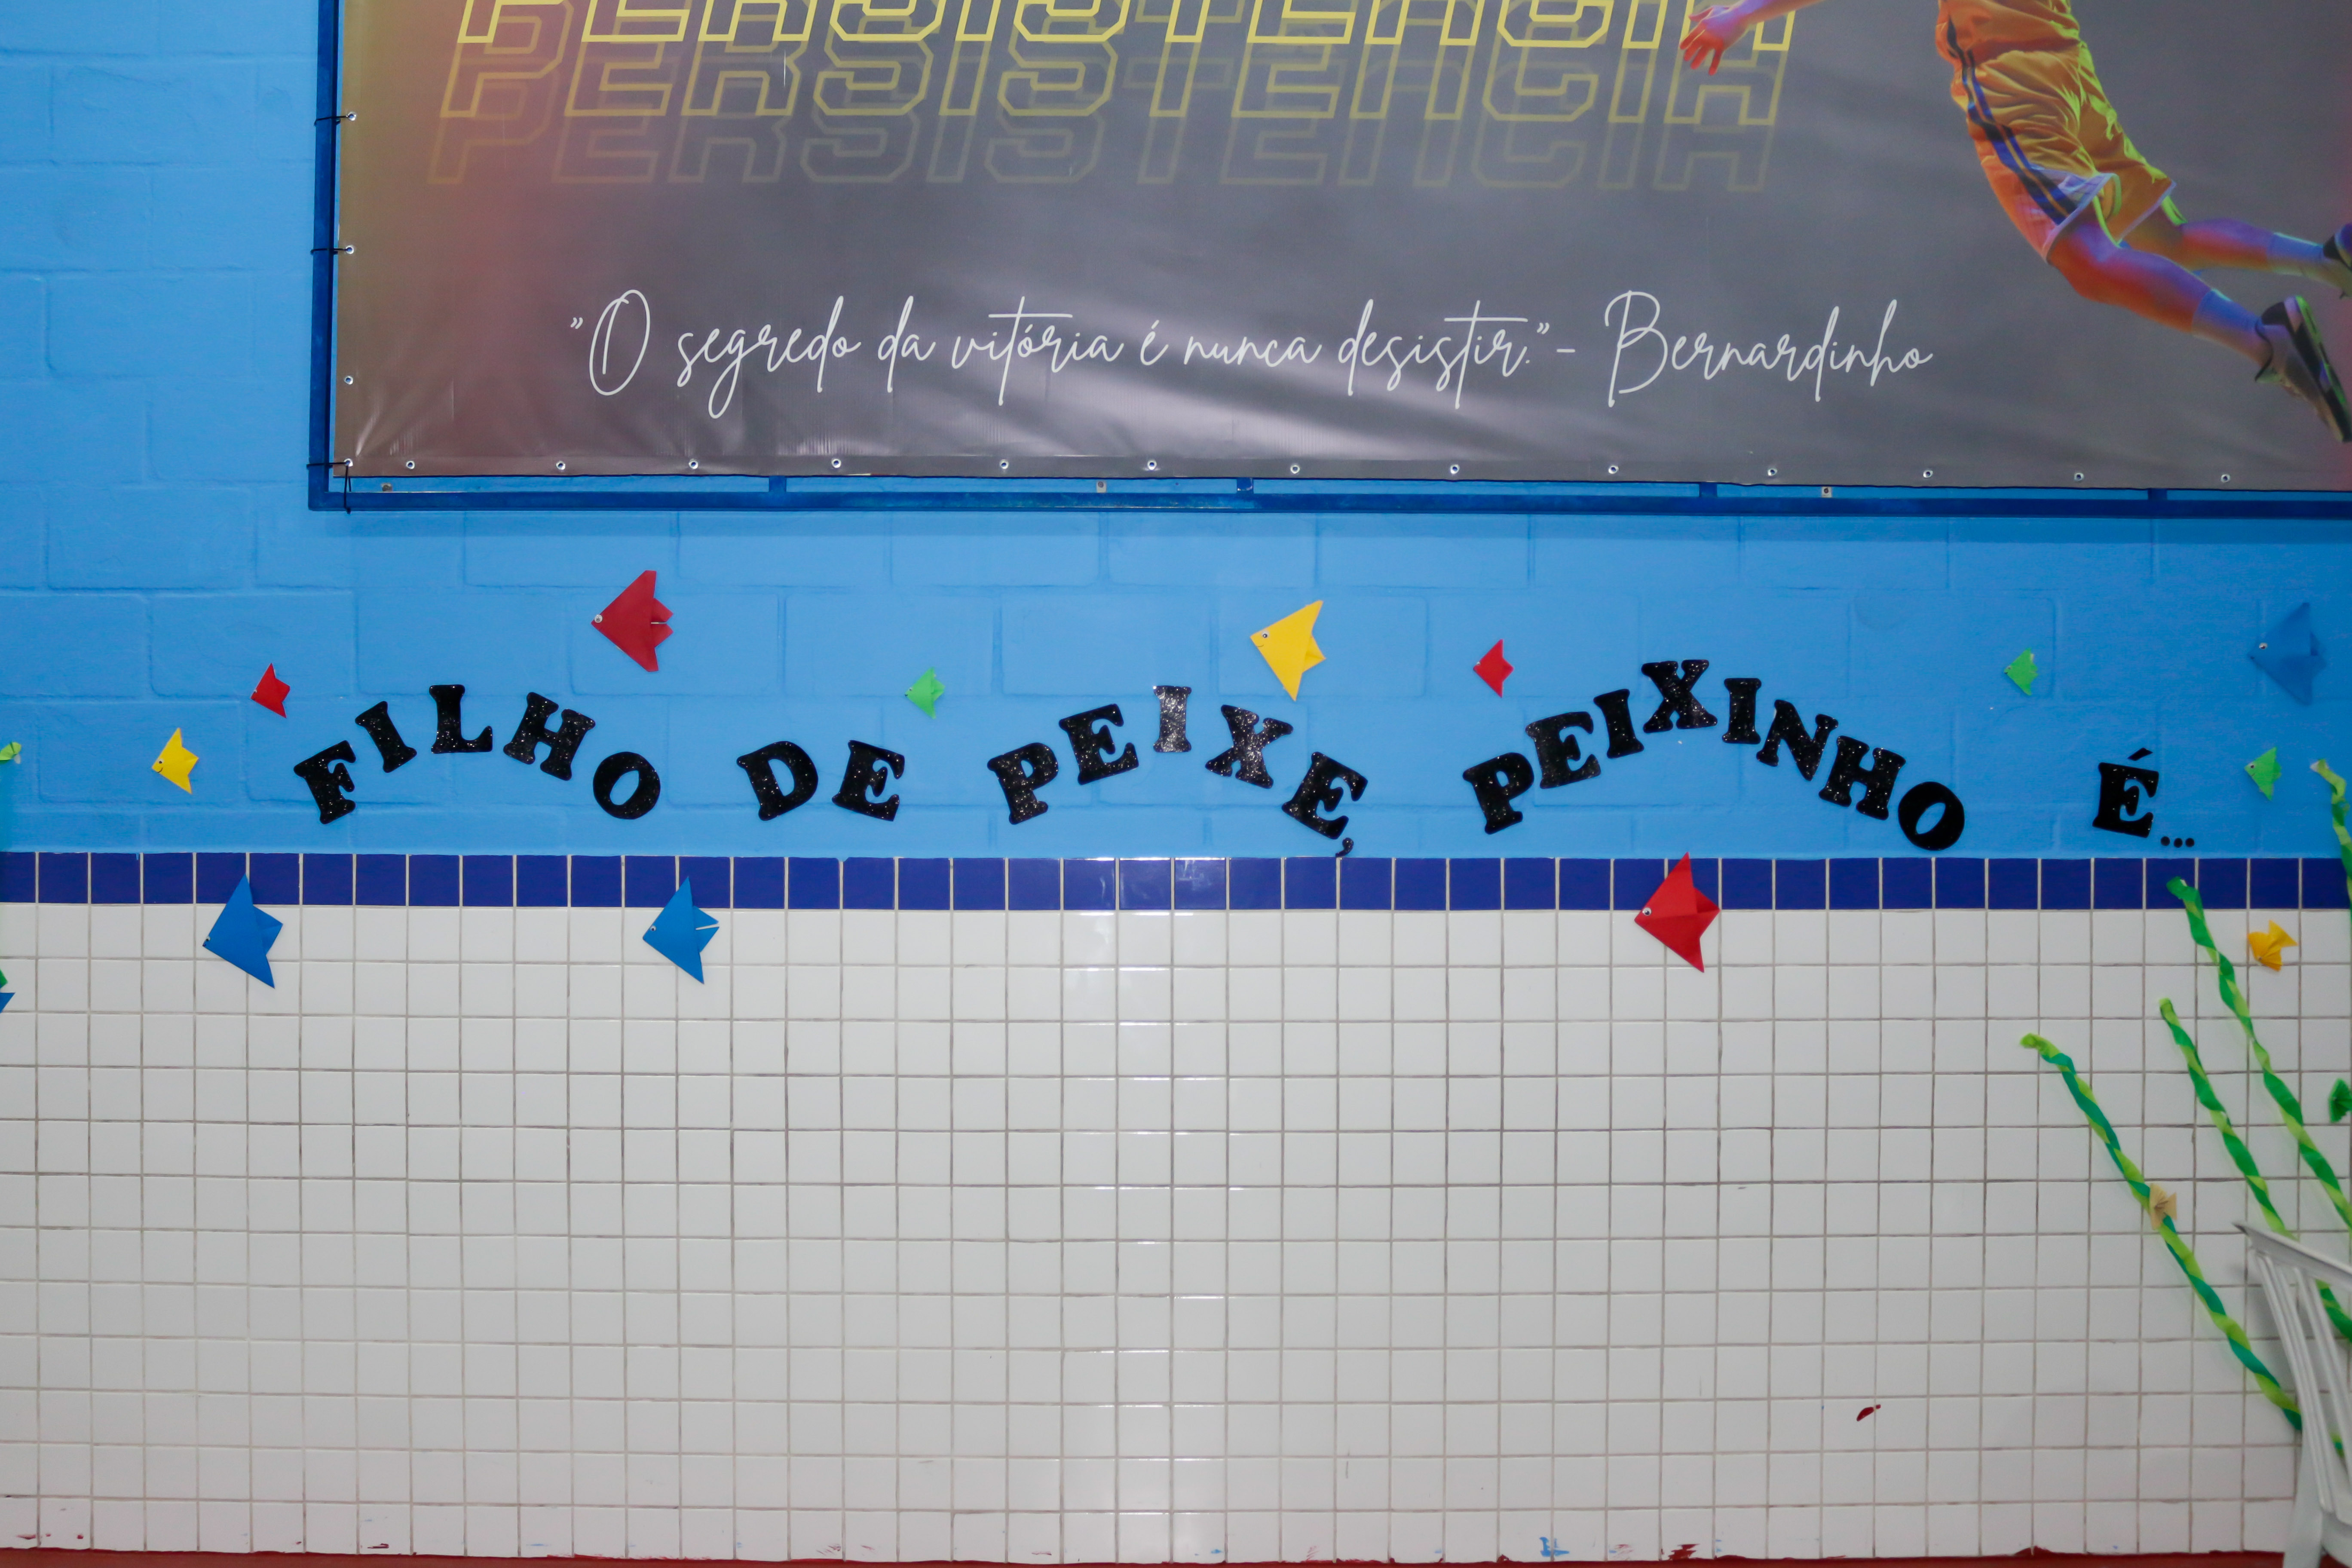 PERSISTENCIA
PERSISTENCIA
PERSISTENCIA
"O segredo da vitória é nunca desistir." - Bernardinho
FILHO DE PEIXE, PEIXINHO É...